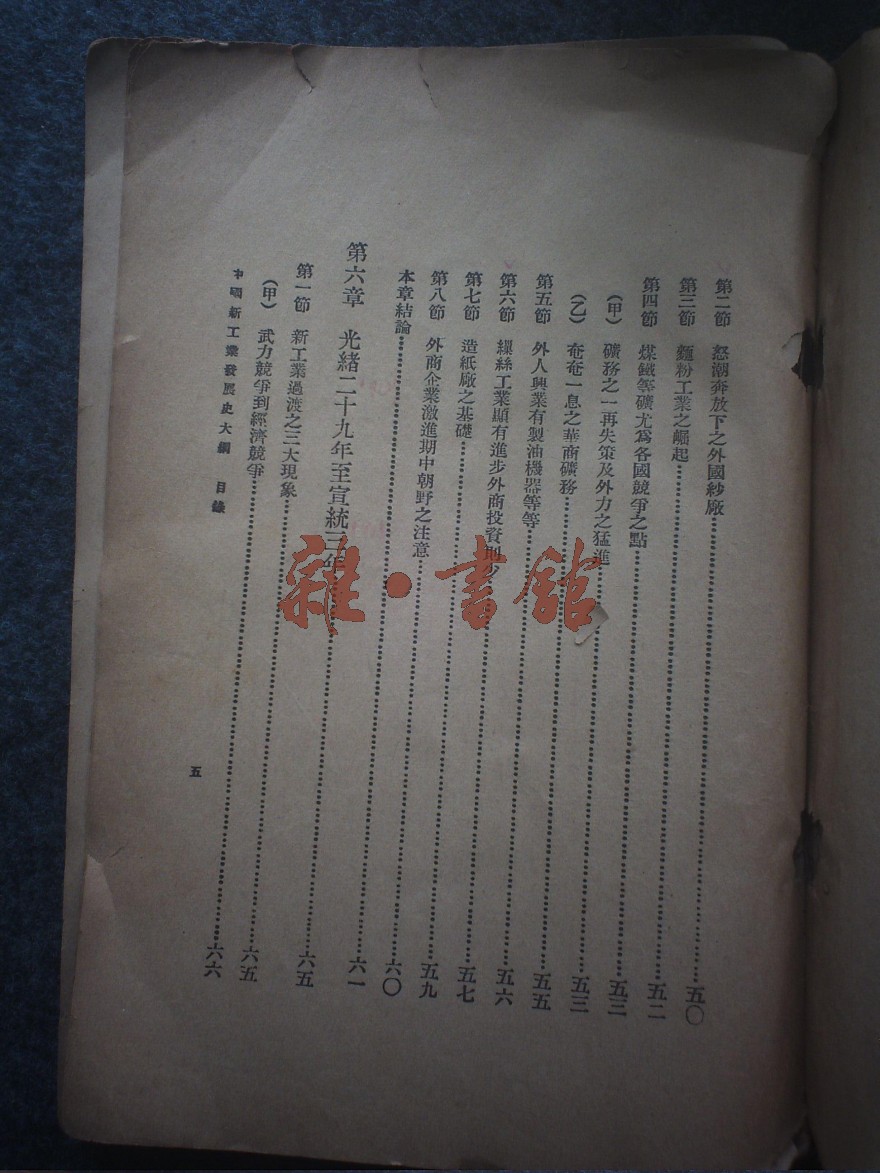 第二節　怒潮奔放下之外國紗廠……五〇
第三節　麵粉工業之崛起……五二
第四節　煤鐵等礦尤爲各國競爭之點……五三
（甲）　礦務之一再失策及外力之猛進……五三
（乙）　奄奄一息之華商礦務……五五
第五節　外人興業有製油機器等等……五六
第六節　繅絲工業顯有進步外商投資則少……五七
第七節　造紙廠之基礎……五九
第八節　外商企業激進期中朝野之注意……六〇
本章結論……六一
第六章　光緒二十九年至宣統三年……六五
第一節　新工業過渡之三大現象……六五
（甲）　武力競爭到經濟競爭……六六
中國新工業發展史大綱　目錄
五
雜·書館